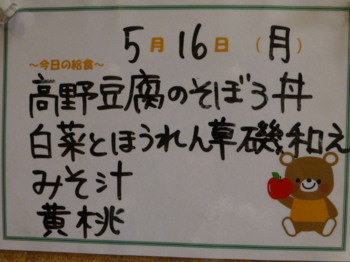 5月16日(月)
～今日の給食～
高野豆腐のそぼろ丼
白菜とほうれん草磯和え
みそ汁
黄桃